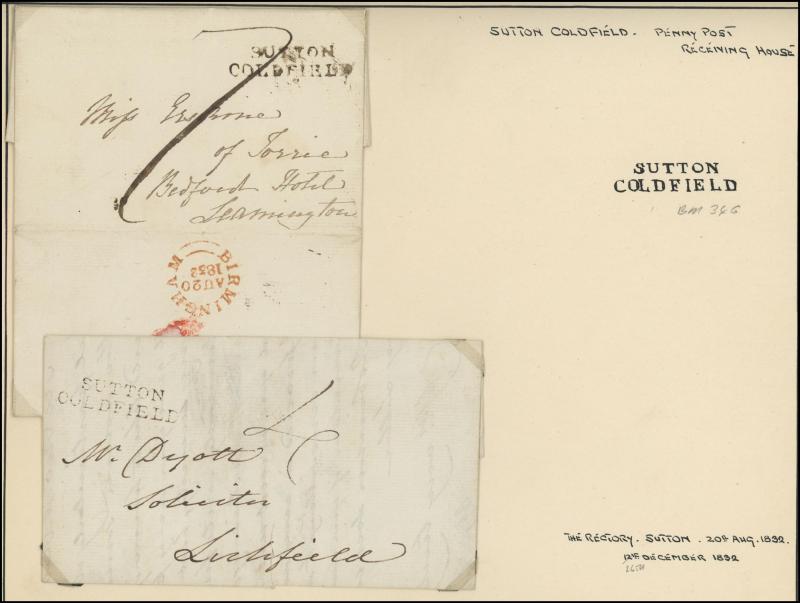 SUTTON
COLDFIELD
7
Miss Erskine
of Torrie
Bedford Hotel
Leamington
BIRMINGHAM
AU 20
1832
SUTTON
COLDFIELD
4
Mr. Dyott
Solicitor
Lichfield
SUTTON COLDFIELD. PENNY POST
RECEIVING HOUSE
SUTTON
COLDFIELD
BM 346
THE RECTORY. SUTTON. 20th AUG. 1832.
12th DECEMBER 1832
26TH